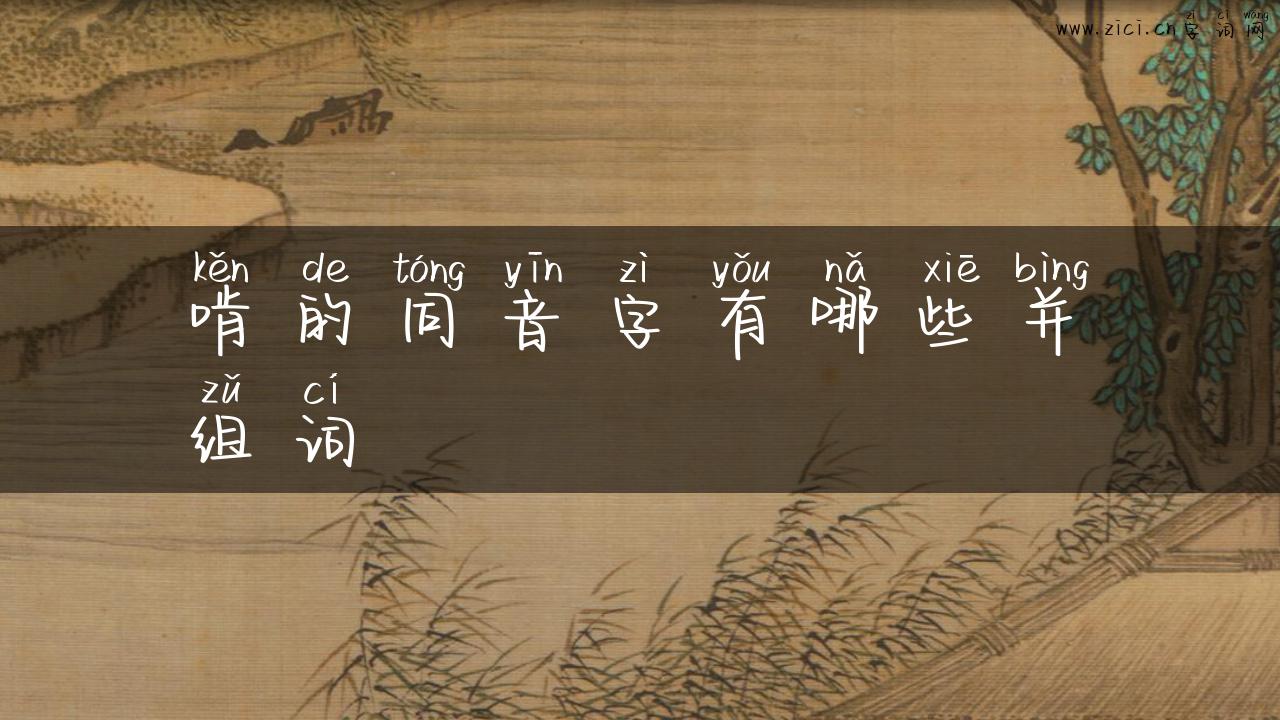 zì cí wǎng
www.zici.cn字词网
kěn de tóng yīn zì yǒu nǎ xiē bìng
啃的同音字有哪些并
zǔ cí
组词